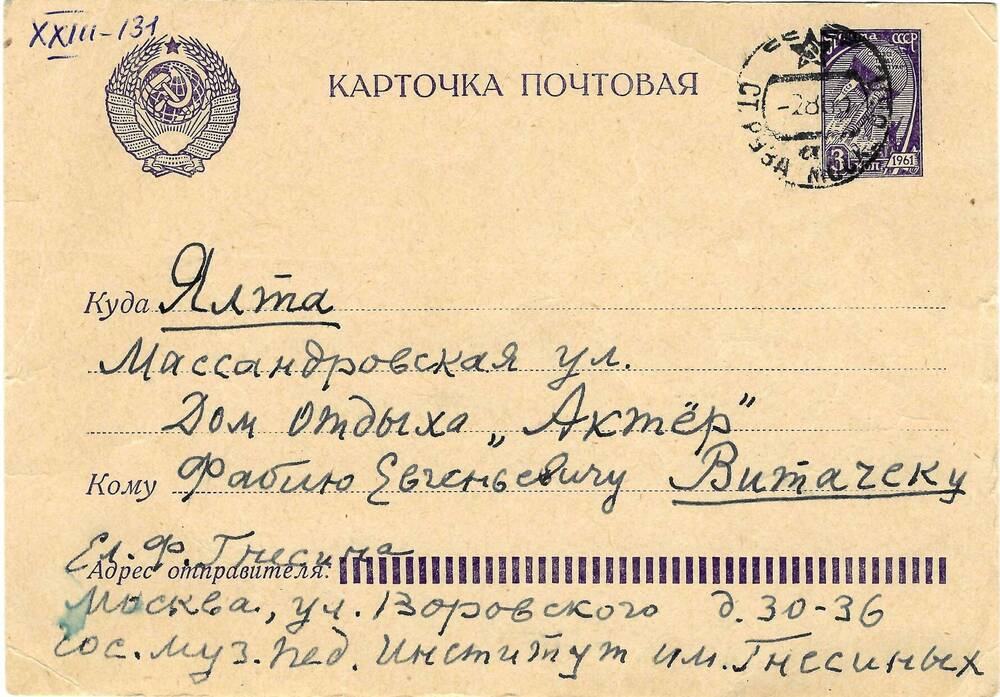 XXIII-131
КАРТОЧКА ПОЧТОВАЯ
СССР
СТ. РУЗА МОСК
3
КОП
1961
Куда Ялта
Массандровская ул.
Дом отдыха „Актёр"
Кому Фабию Евгеньевичу Витачеку
Ел. Ф. Гнесина
Адрес отправителя:
Москва, ул. Воровского д. 30-36
Гос. Муз. Пед. Институт им. Гнесиных